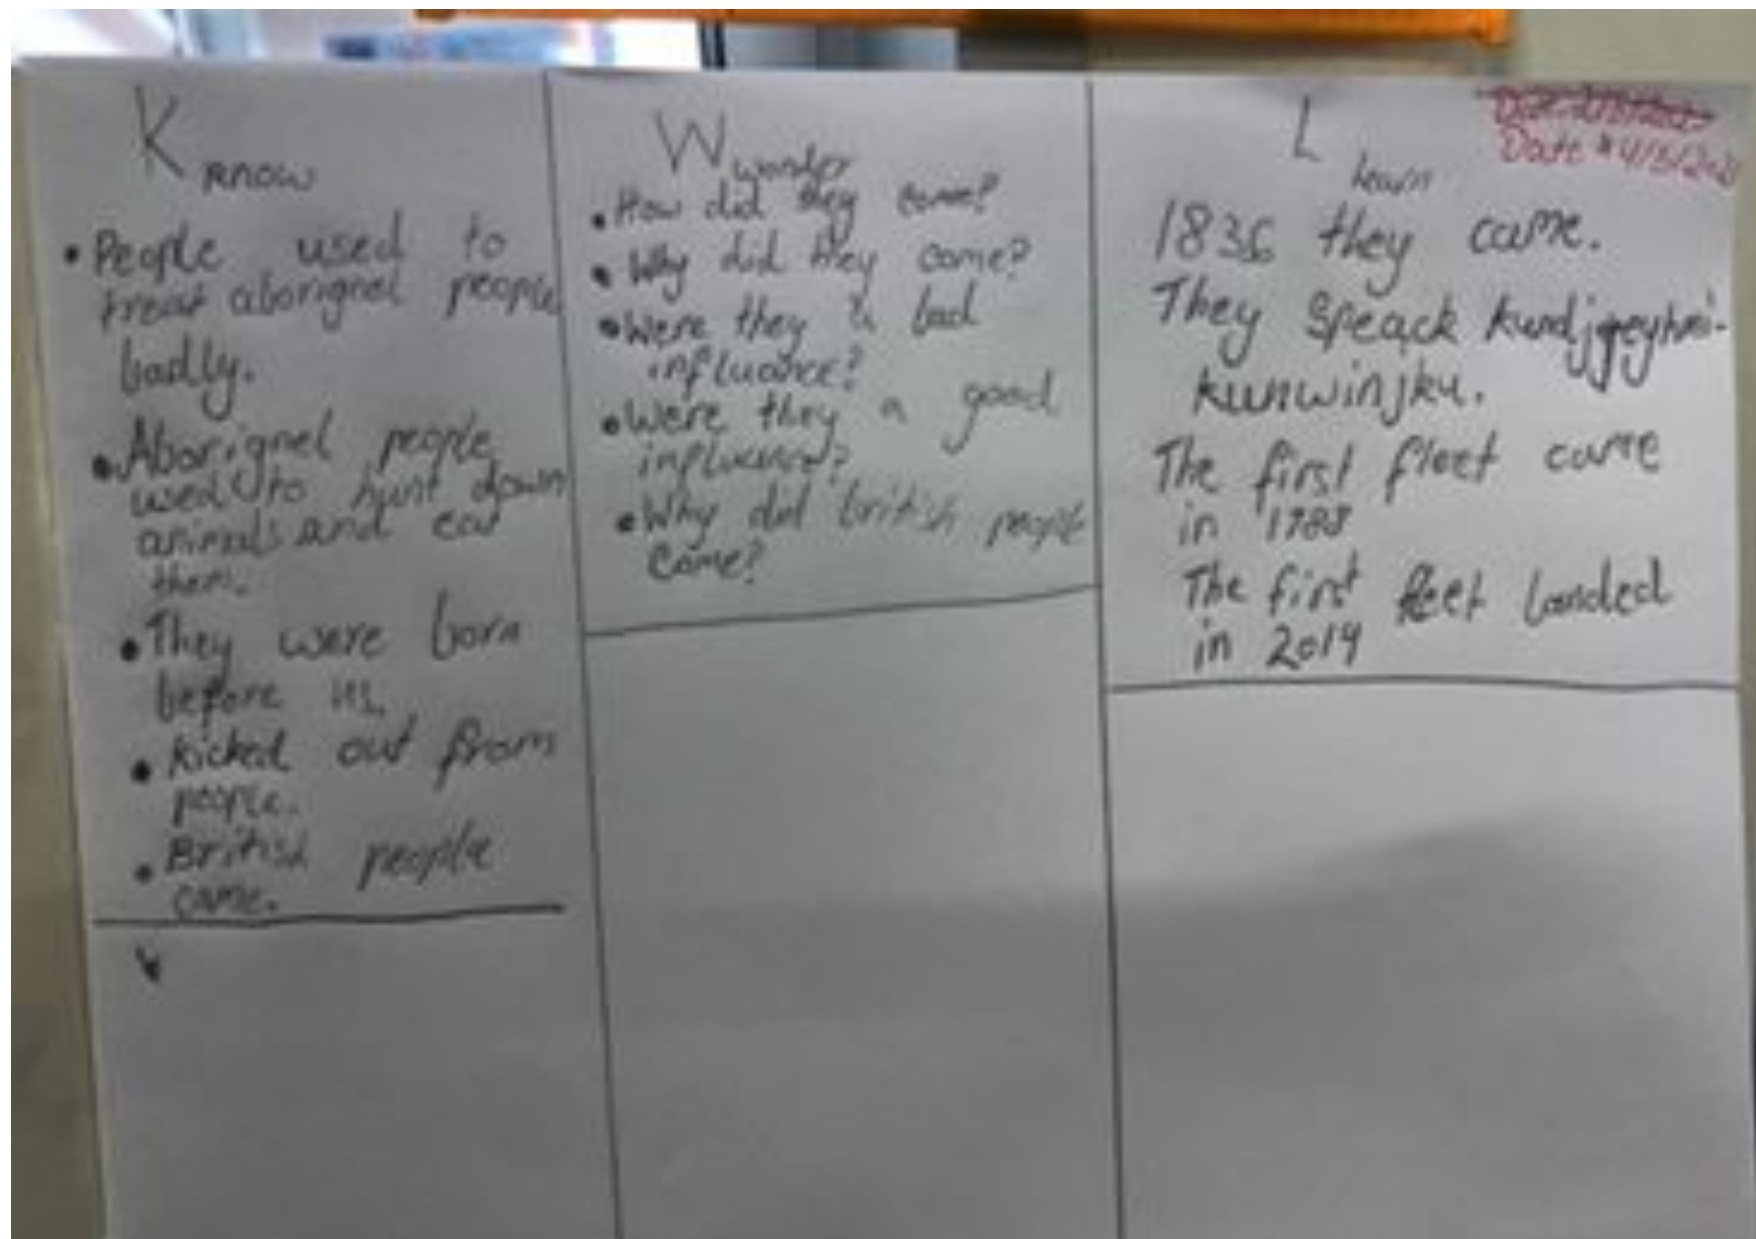 K know
• People used to
treat aborignel people
badly.
• Aborignel people
used to hunt down
animals and eat
them.
• They were born
before us.
• kicked out from
people.
• British people
came.
W wonder
• How did they come?
• Why did they come?
• Were they a bad
influance?
• Were they a good
influence?
• Why did british people
come?
L learn
Date 4/5/
1836 they came.
They Speack kundjgeyhmi-
kunwinjku.
The first fleet came
in 1788
The first fleet landed
in 2014